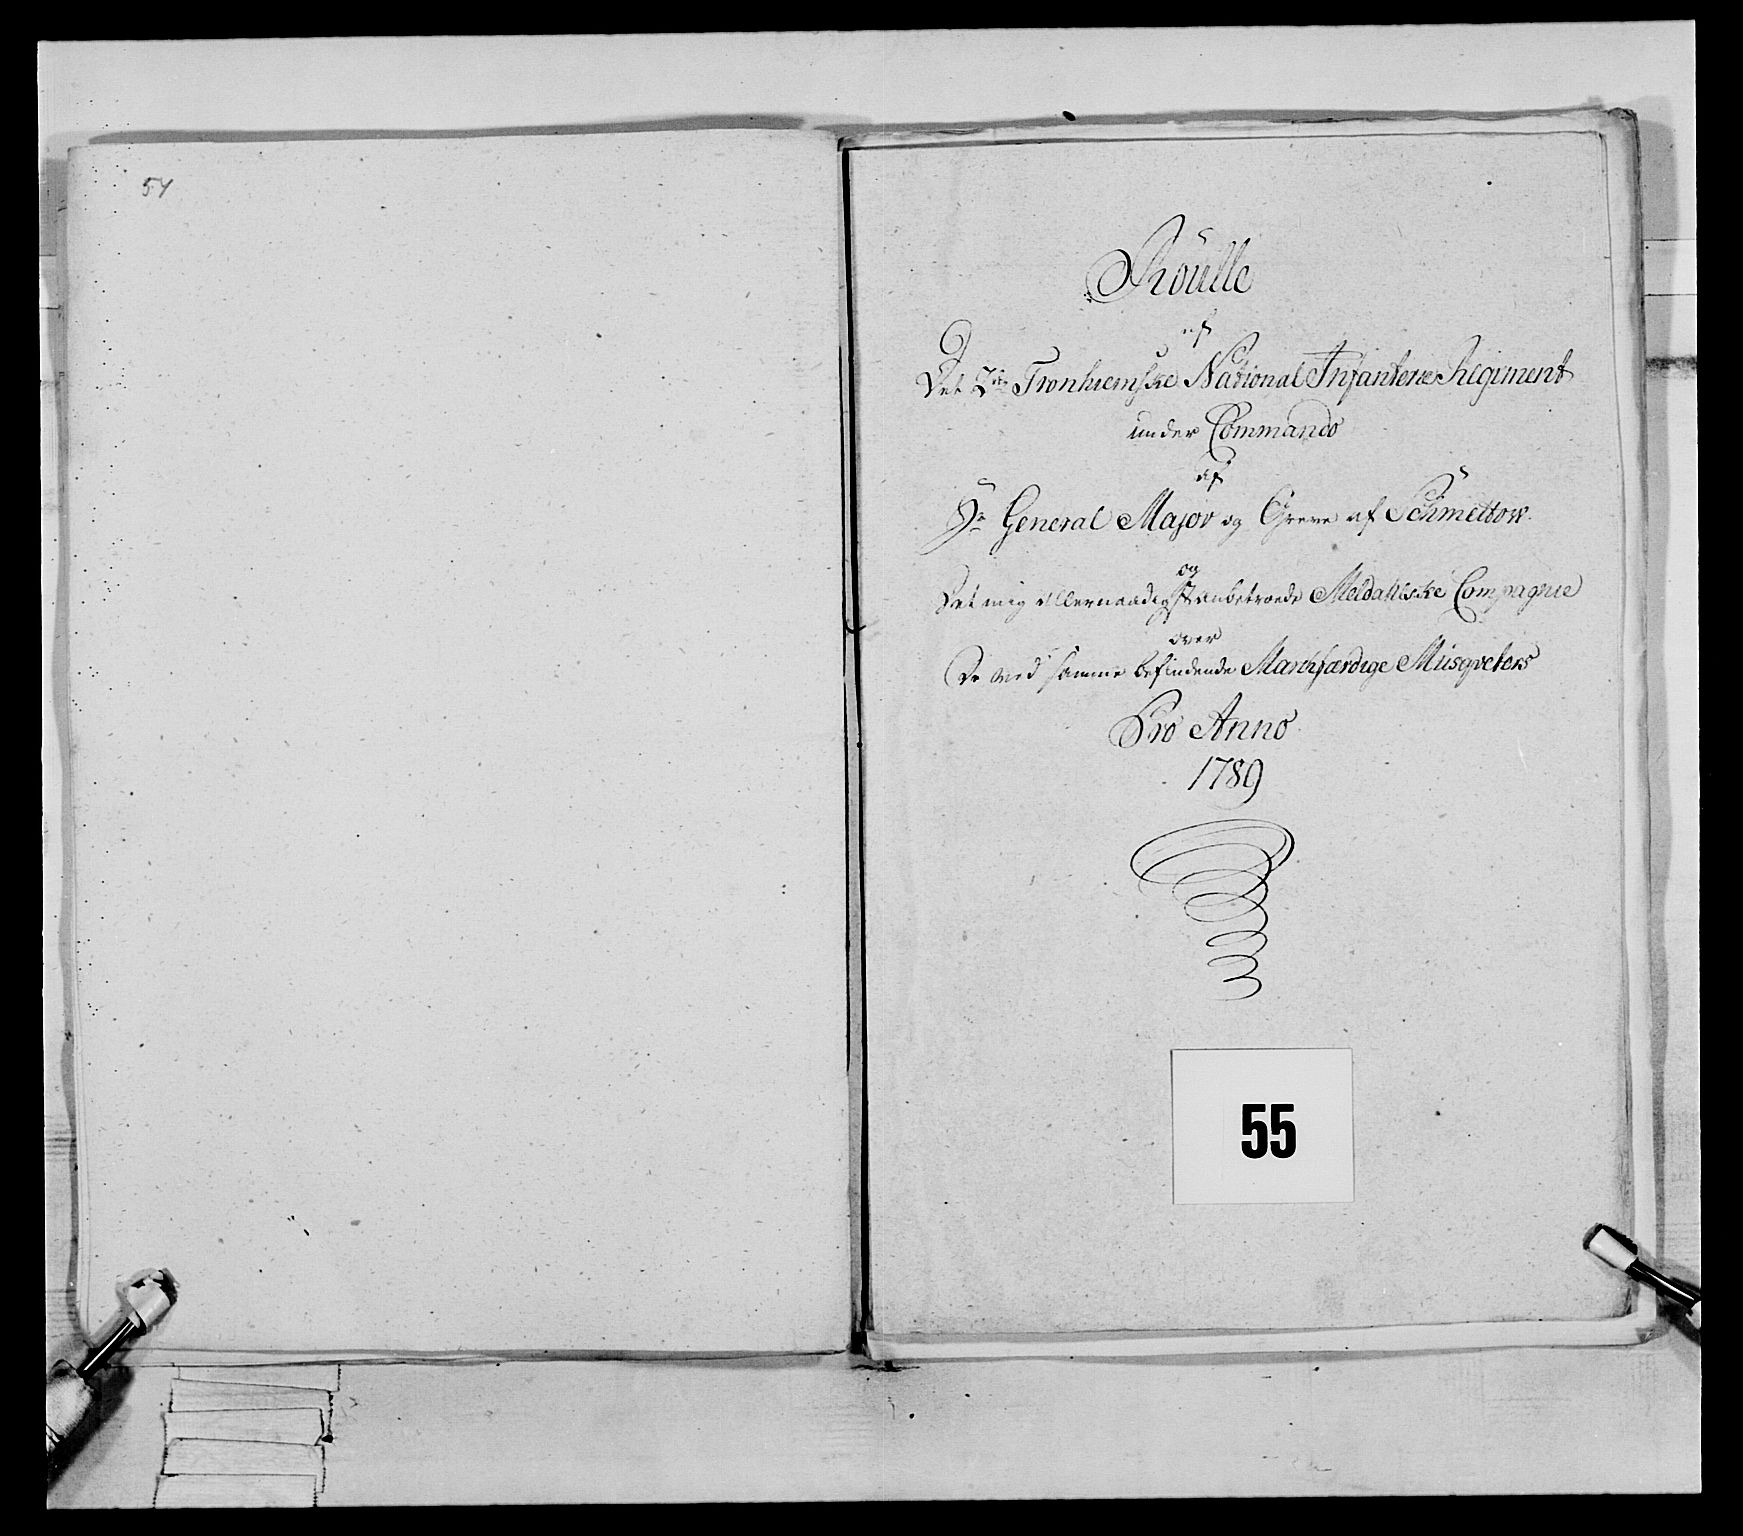 54
Roulle
af
Det 2de Tronhiemske National Infanterie Regiment
under Commando
af
Hr General Major og Greve af Schmettow
og
Det mig allernaadigst anbetroede Meldahlske Compagnie
over
De ved samme befindende Marchfærdige Musqveters
Pro Anno
1789
55